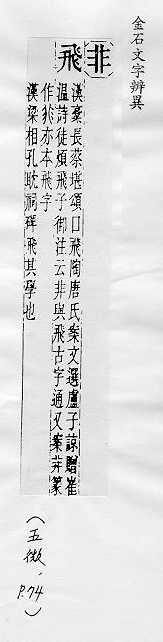 金石文字辨異
非
飛
漢豪長蔡湛頌口飛陶唐氏案文選盧子諒贈崔
温詩徒煩飛子御注云非與飛古字通又案非篆
作𩙱亦本飛字
漢梁相孔耽祠碑飛其學也
(五微,
P.74)